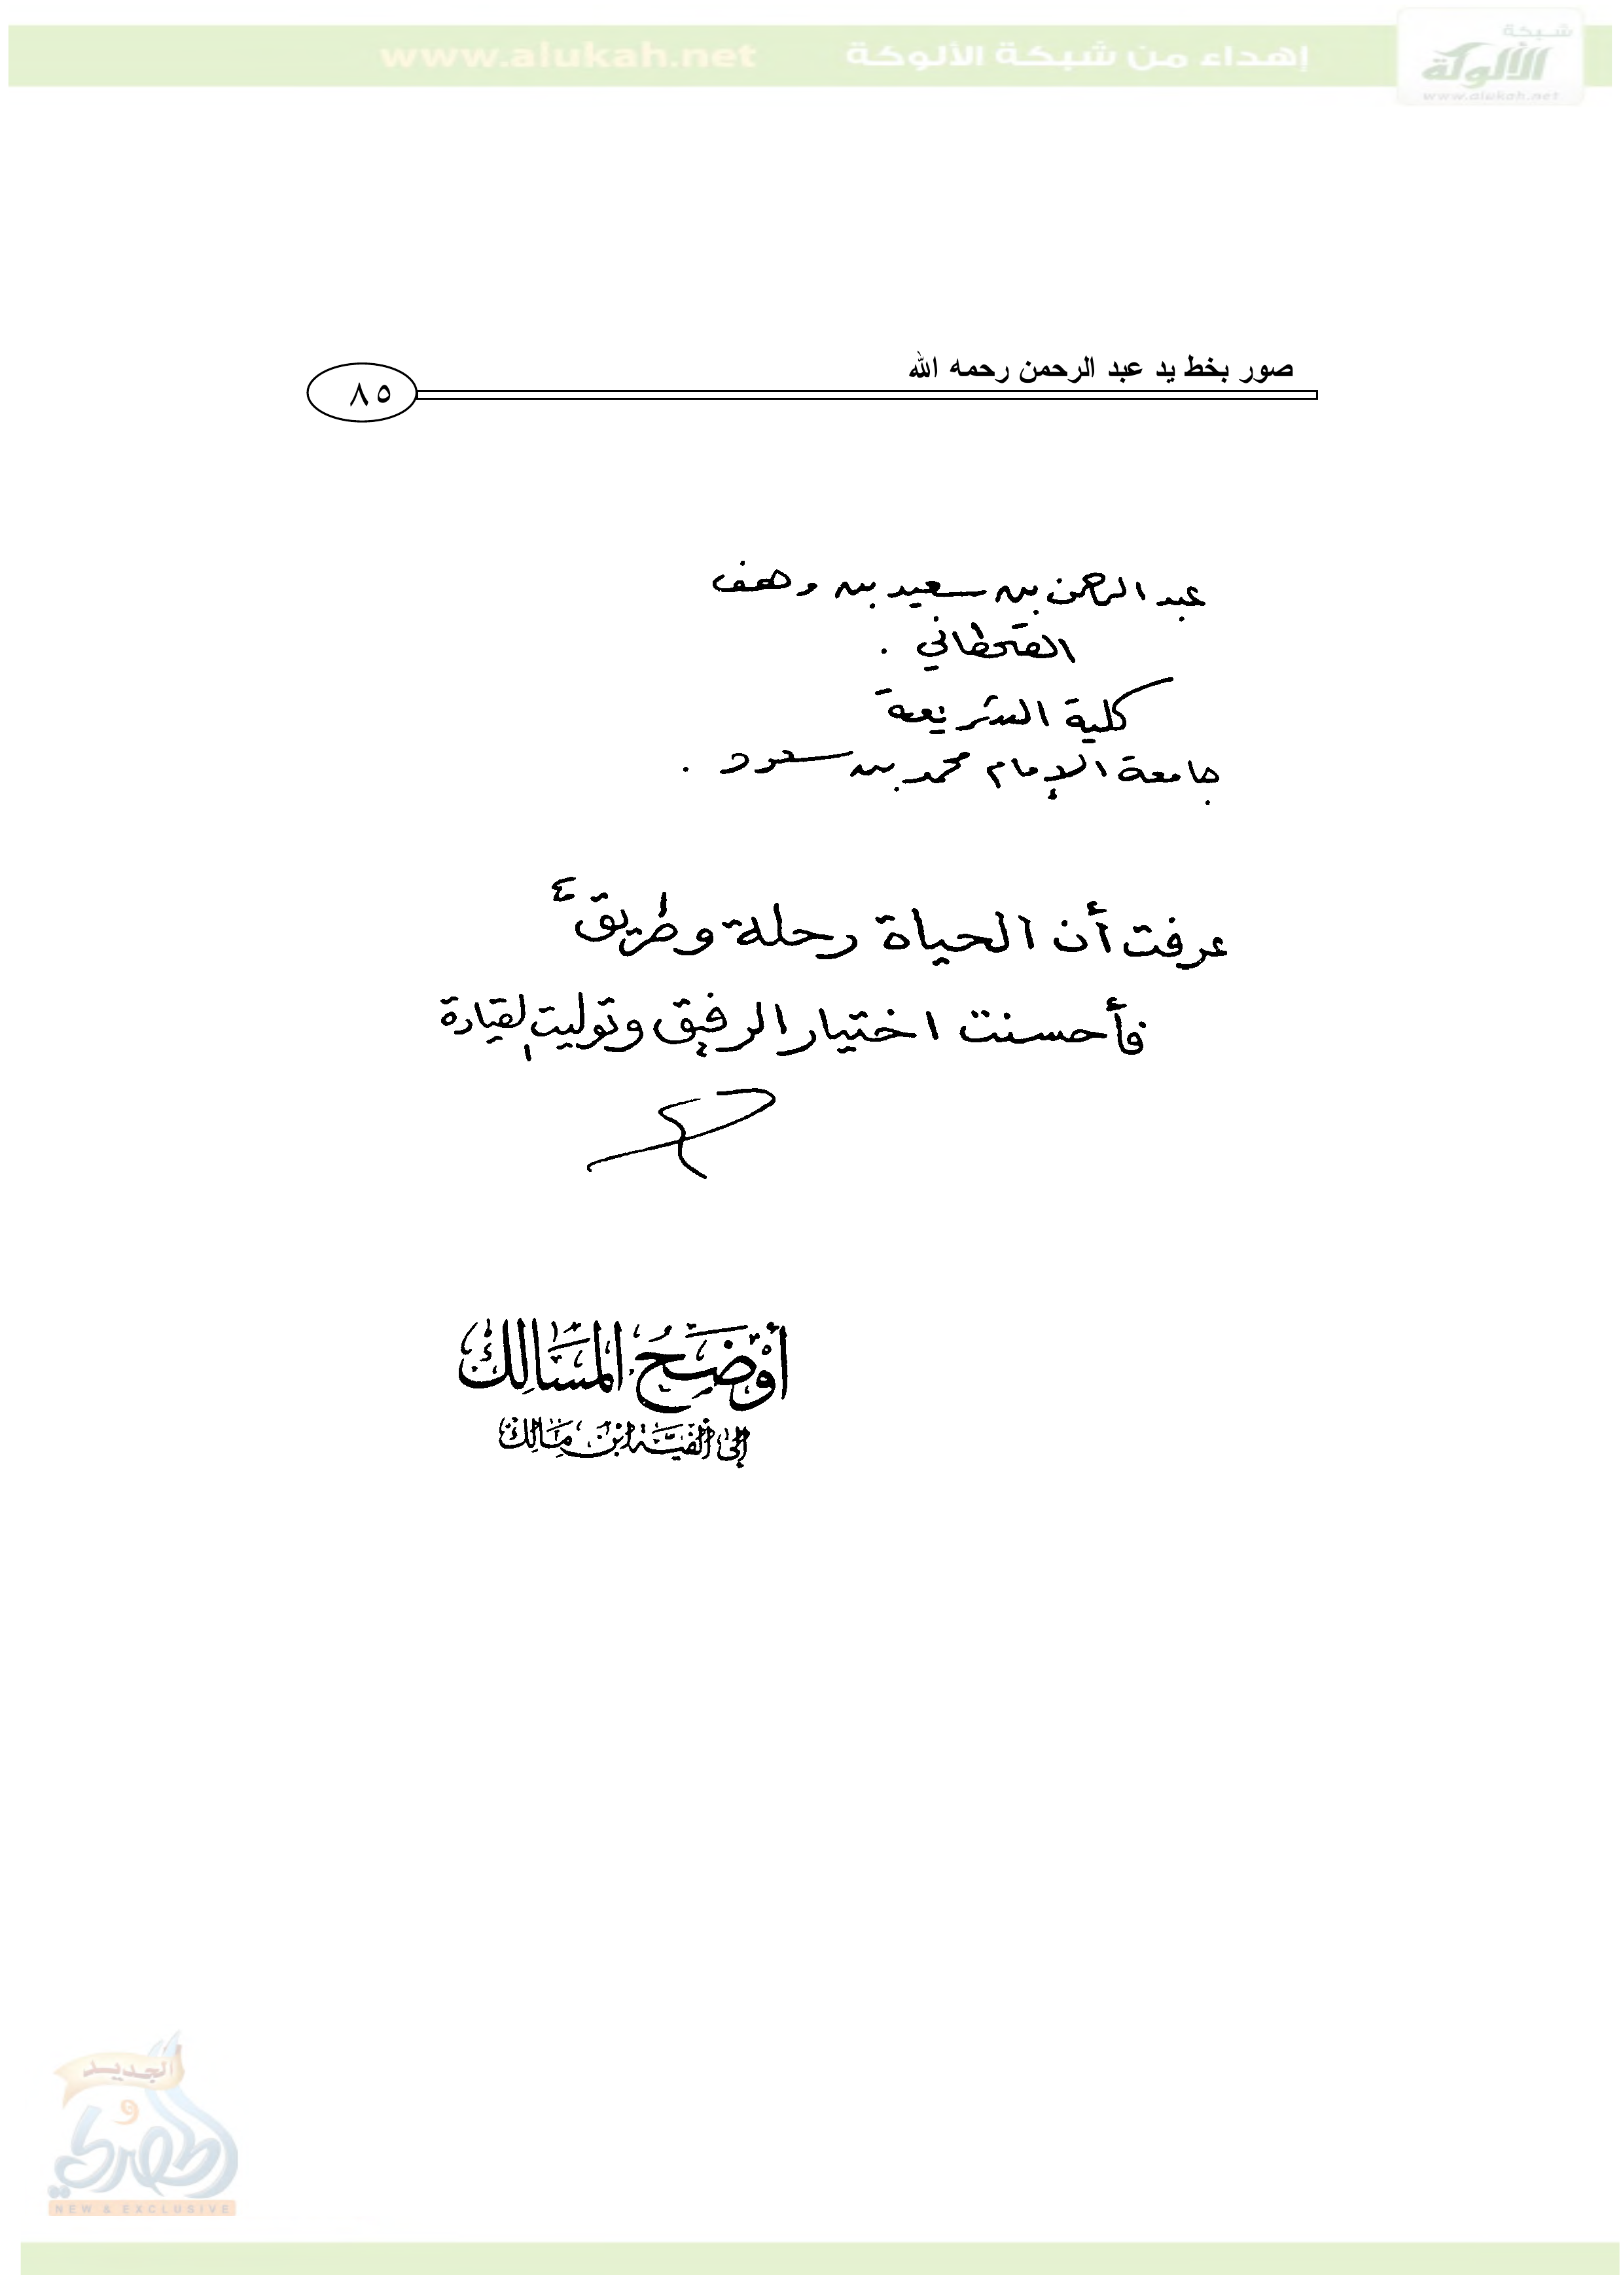 إهداء من شبكة الألوكة www.alukah.net
شبكة
الألوكة
www.alukah.net
صور بخط يد عبد الرحمن رحمه الله
٨٥
عبد الرحمن بن سعيد بن وهف
القحطاني .
كلية الشريعة
جامعة الإمام محمد بن سعود .
عرفت أن الحياة رحلة وطريق
فأحسنت اختيار الرفيق وتوليت القيادة
أَوْضَحُ المَسَالِك
إلى ألفية ابن مالك
الجديد
و
الحصري
NEW & EXCLUSIVE